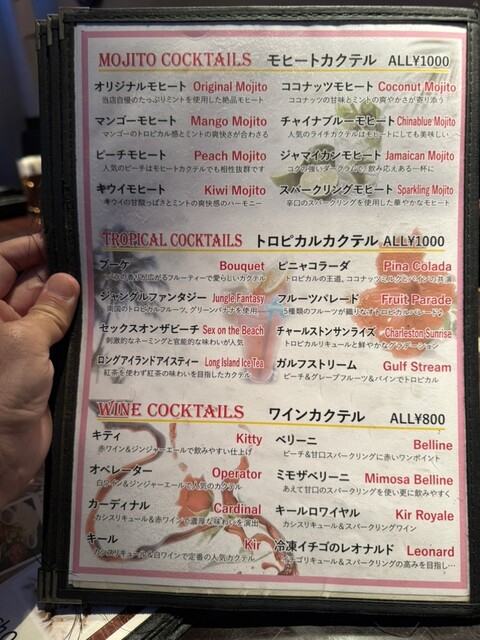 MOJITO COCKTAILS モヒートカクテル ALL¥1000
オリジナルモヒート Original Mojito
当店自慢のたっぷりミントを使用した絶品モヒート
ココナッツモヒート Coconut Mojito
ココナッツの甘味とミントの爽やかさが寄り添う
マンゴーモヒート Mango Mojito
マンゴーのトロピカル感とミントの爽快さが合わさる
チャイナブルーモヒート Chinablue Mojito
人気のライチカクテルはモヒートにしても美味しい
ピーチモヒート Peach Mojito
人気のピーチはモヒートカクテルでも相性抜群です
ジャマイカンモヒート Jamaican Mojito
コクの強いダークラムで、飲み応えある一杯に
キウイモヒート Kiwi Mojito
キウイの甘酸っぱさとミントの爽快感のハーモニー
スパークリングモヒート Sparkling Mojito
辛口のスパークリングを使用した華やかなモヒート
TROPICAL COCKTAILS トロピカルカクテル ALL¥1000
ブーケ Bouquet
の香りが広がるフルーティーで愛らしいカクテル
ピニャコラーダ Pina Colada
トロピカルの王道、ココナッツミルクとパインの共演
ジャングルファンタジー Jungle Fantasy
南国のトロピカルフルーツ、グリーンバナナを使用
フルーツパレード Fruit Parade
5種類のフルーツが織りなすトロピカルパレード♪
セックスオンザビーチ Sex on the Beach
刺激的なネーミングと官能的な味わいが人気
チャールストンサンライズ Charleston Sunrise
トロピカルリキュールと鮮やかなグラデーション
ロングアイランドアイスティー Long Island Ice Tea
紅茶を使わず紅茶の味わいを目指したカクテル
ガルフストリーム Gulf Stream
ピーチ＆グレープフルーツ＆パインでトロピカル
WINE COCKTAILS ワインカクテル ALL¥800
キティ Kitty
赤ワイン＆ジンジャーエールで飲みやすい仕上げ
ベリーニ Belline
ピーチ＆甘口スパークリングに赤いワンポイント
オペレーター Operator
白ワイン＆ジンジャーエールで人気のカクテル
ミモザベリーニ Mimosa Belline
あえて甘口のスパークリングを使い更に飲みやすく
カーディナル Cardinal
カシスリキュール＆赤ワインで濃厚な味わいを演出
キールロワイヤル Kir Royale
カシスリキュール＆スパークリングワイン
キール Kir
カシスリキュール＆白ワインで定番の人気カクテル
冷凍イチゴのレオナルド Leonard
イチゴリキュール＆スパークリングの高みを目指し…